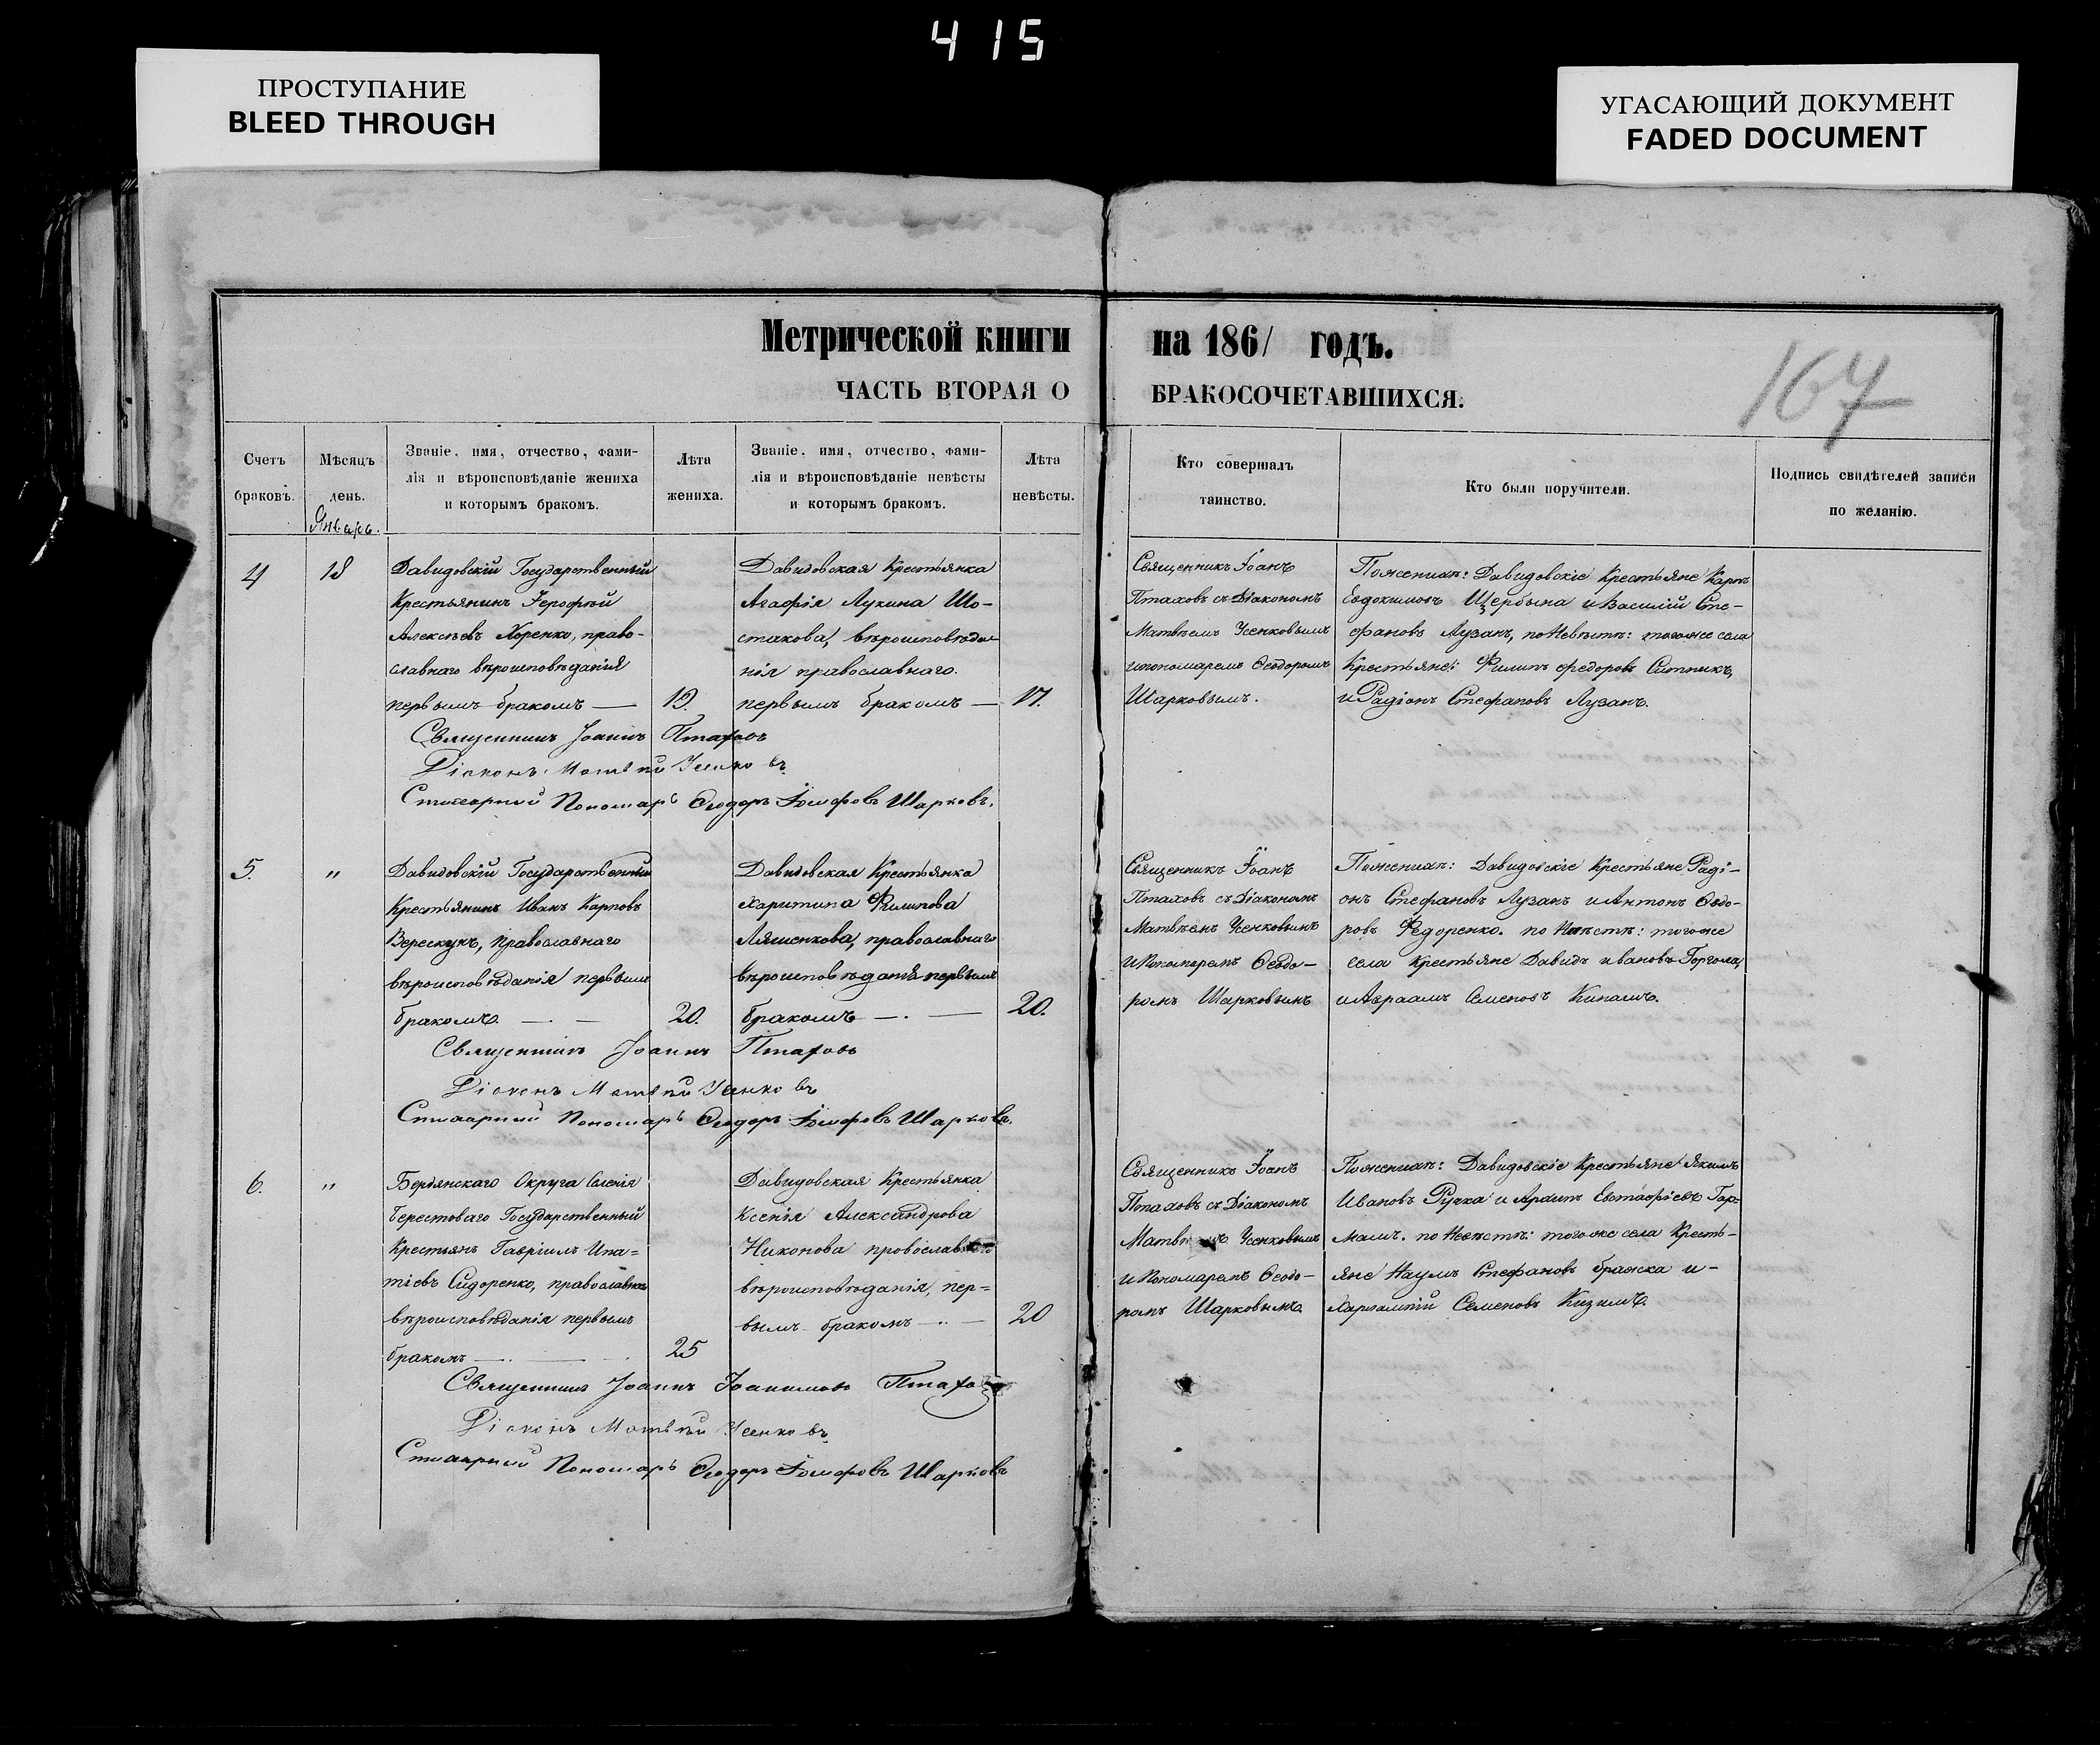 415
ПРОСТУПАНИЕ
BLEED THROUGH
УГАСАЮЩИЙ ДОКУМЕНТ
FADED DOCUMENT
Метрической книги на 1861 годъ.
167
ЧАСТЬ ВТОРАЯ О БРАКОСОЧЕТАВШИХСЯ.
Счетъ браковъ.
Мѣсяцъ день.
Званіе, имя, отчество, фами-
лія и вѣроисповѣданіе жениха
и которымъ бракомъ.
Лѣта жениха.
Званіе, имя, отчество, фами-
лія и вѣроисповѣданіе невѣсты
и которымъ бракомъ.
Лѣта невѣсты.
Кто совершалъ
таинство.
Кто были поручители.
Подпись свидѣтелей записи
по желанію.
Январь.
4
18
Давидовскій Государственный
Крестьянинъ Іерофѣй
Алексѣевъ Хоренко, право-
славнаго вѣроисповѣданія
первымъ бракомъ —
19
Давидовская Крестьянка
Агафія Лукина Шо-
стакова, вѣроисповѣда-
нія православнаго.
первымъ бракомъ —
17.
Священникъ Іоанъ
Птаховъ съ Діакономъ
Матвѣемъ Усенковымъ
и пономаремъ Феодоромъ
Шарковымъ.
По женихѣ: Давидовскіе Крестьяне Карпъ
Евдокимовъ Щербина и Василій Сте-
фановъ Лузанъ, по Невѣстѣ: того же села
Крестьяне: Филипъ Федоровъ Ситникъ,
и Радіонъ Стефановъ Лузанъ.
Священникъ Іоаннъ Птаховъ
Діаконъ Матвѣй Усенковъ
Стихарный Пономарь Ѳеодоръ Іосифовъ Шарковъ.
5.
"
Давидовскій Государственный
Крестьянинъ Иванъ Карповъ
Верескунъ, православнаго
вѣроисповѣданія первымъ
бракомъ. — . —
20.
Давидовская Крестьянка
Харитина Филипова
Ляшенкова, православнаго
вѣроисповѣданія первымъ
бракомъ — . —
20.
Священникъ Іоанъ
Птаховъ съ Діакономъ
Матвѣемъ Усенковымъ
и Пономаремъ Феодо-
ромъ Шарковымъ
По женихѣ: Давидовскіе Крестьяне Раді-
онъ Стефановъ Лузанъ и Антонъ Федо-
ровъ Федоренко. по Невѣстѣ: того же
села Крестьяне Давидъ Ивановъ
и Авраамъ Семеновъ
Священникъ Іоаннъ Птаховъ
Діаконъ Матвѣй Усенковъ
Стихарный Пономарь Ѳеодоръ Іосифовъ Шарковъ.
6.
"
Бердянскаго Округа Селенія
Берестоваго Государственный
Крестьянъ Гавріилъ Ипа=
тіевъ Сидоренко, православнаго
вѣроисповѣданія первымъ
бракомъ —
25
Давидовская Крестьянка
Ксенія Александрова
Никонова православнаго
вѣроисповѣданія, пер=
вымъ бракомъ — . —
20
Священникъ Іоанъ
Птаховъ съ Діакономъ
Матвѣемъ Усенковымъ
и Пономаремъ Феодо-
ромъ Шарковымъ
По женихѣ: Давидовскіе Крестьяне Якимъ
Ивановъ Ручка и Архипъ Евстафіевъ Гор=
по Невѣстѣ: того же села Кресть-
яне Наумъ Стефановъ Бражка и -
Харлампій Семеновъ Кизимъ.
Священникъ Іоаннъ Іоакимовъ Птаховъ
Діаконъ Матвѣй Усенковъ
Стихарный Пономарь Ѳеодоръ Іосифовъ Шарковъ